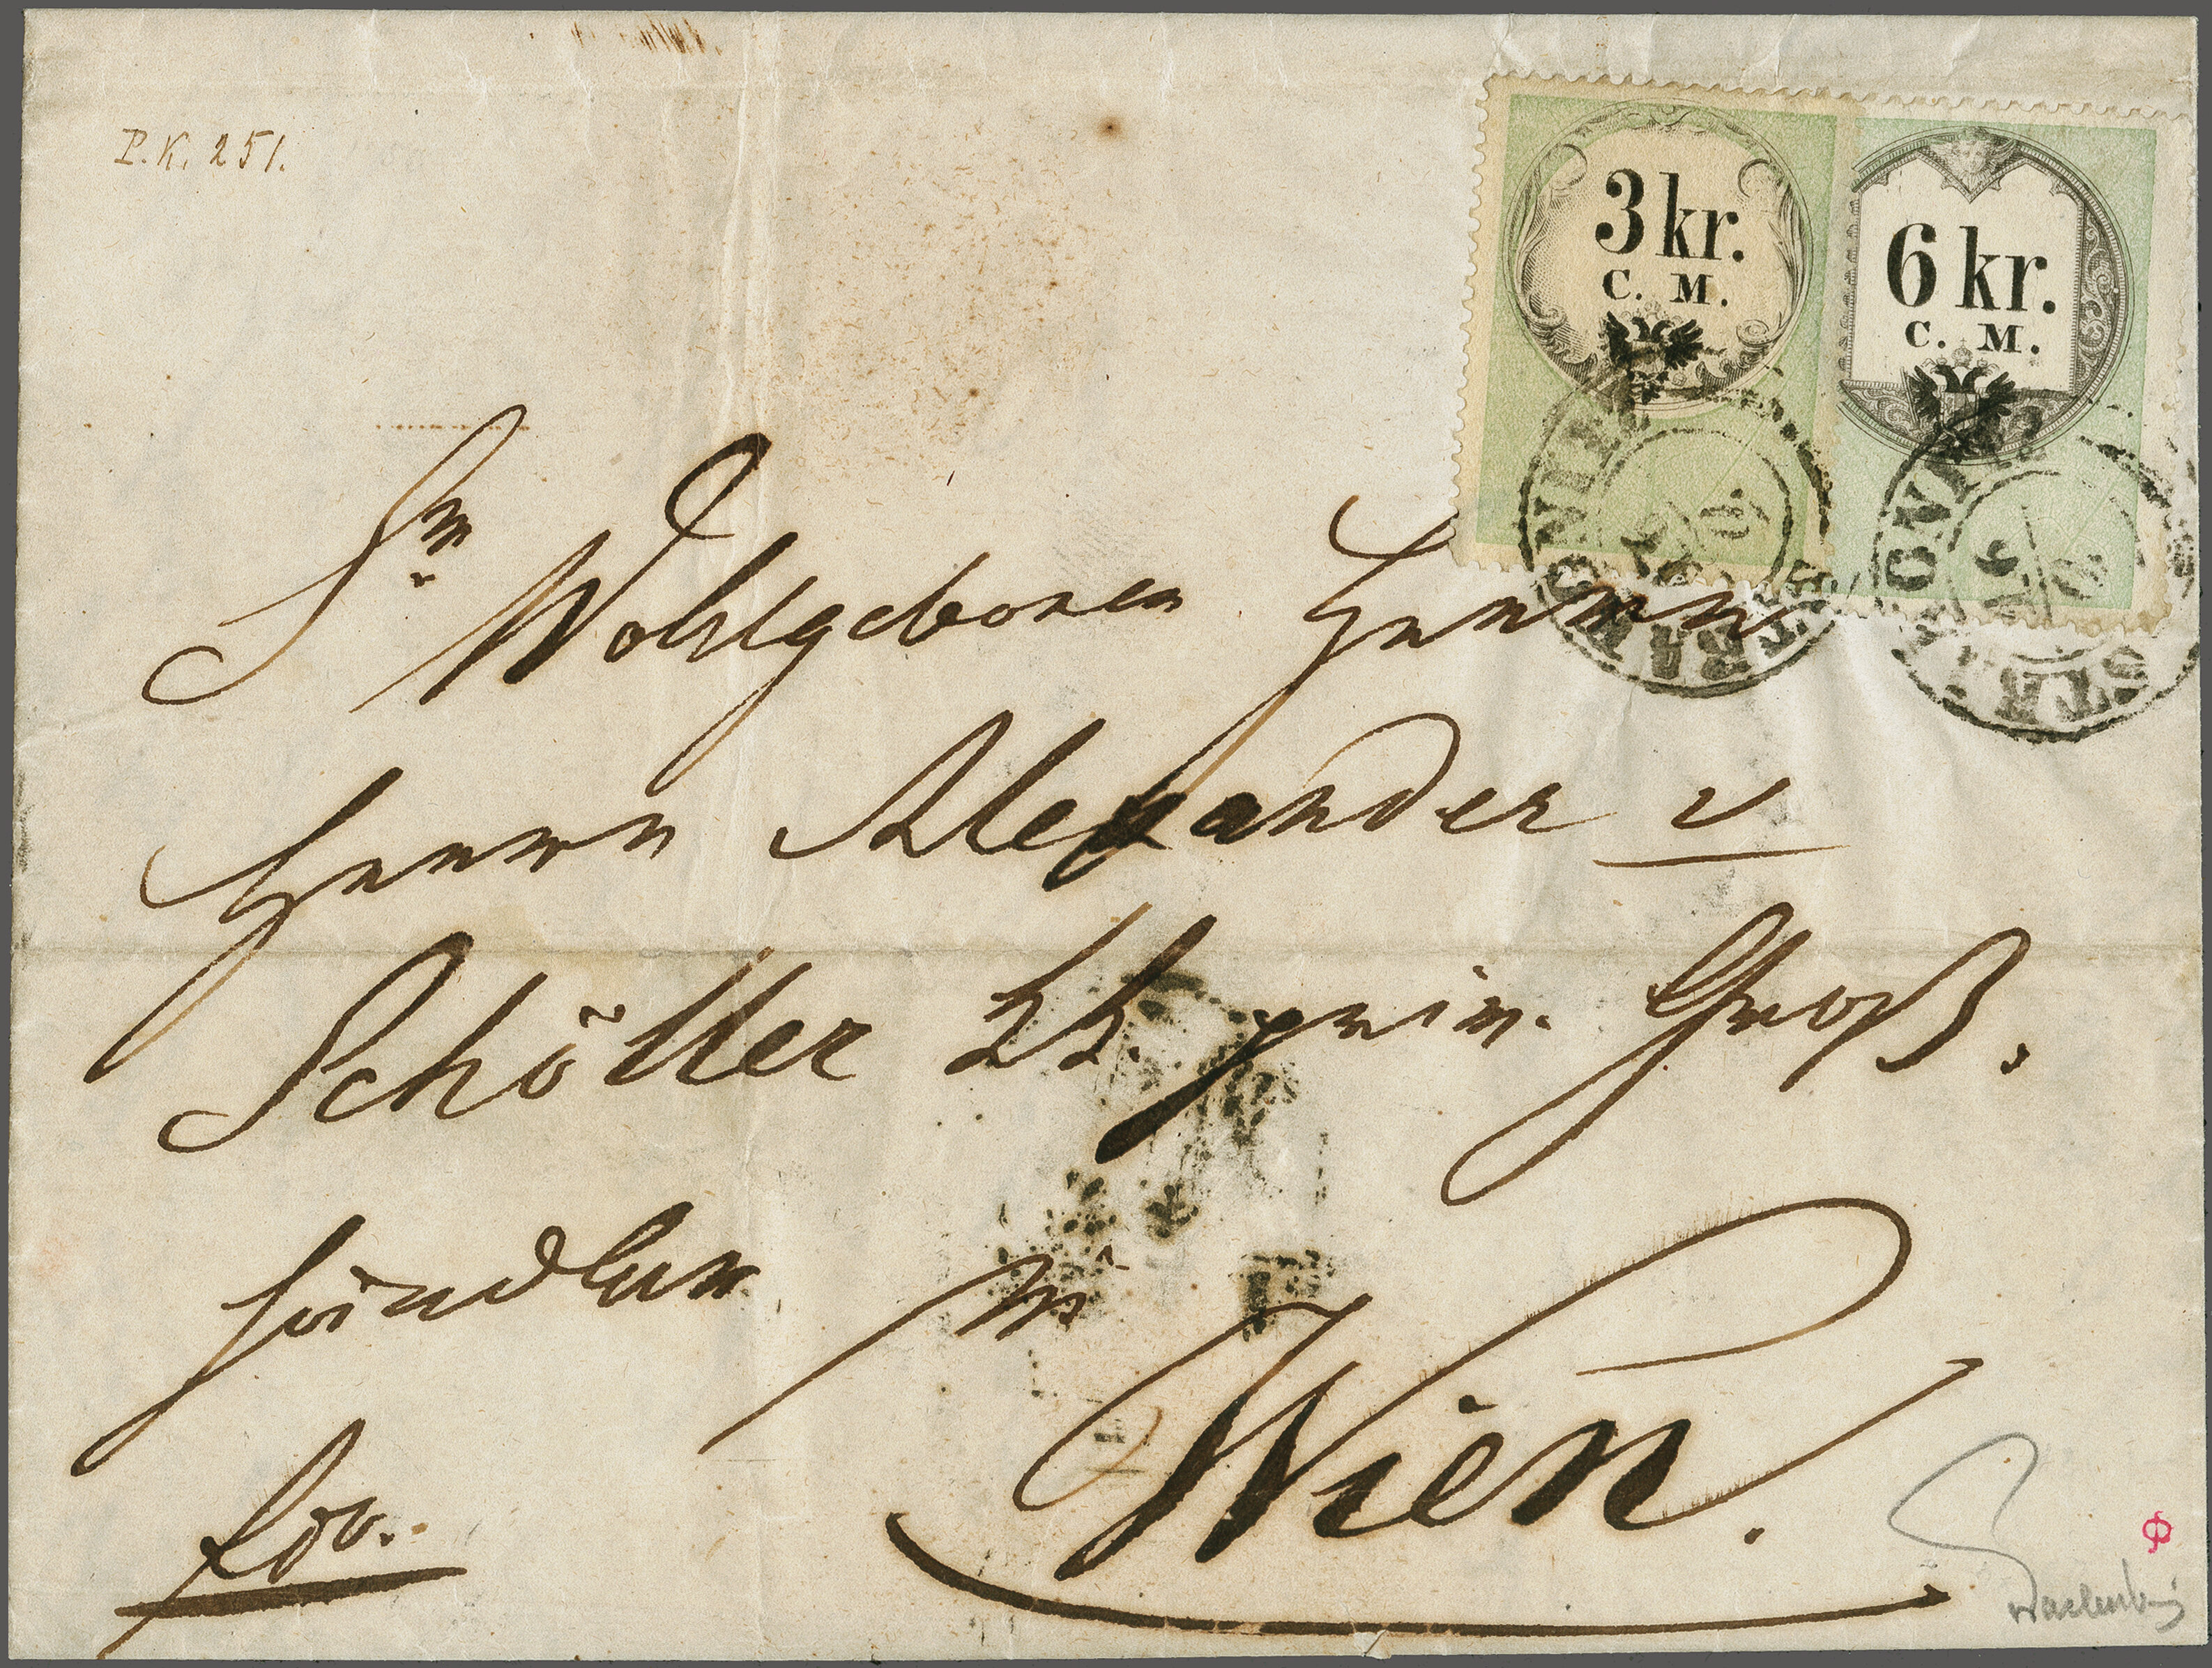 P.K. 251.
3 kr.
C. M.
6 kr.
C. M.
Sr Wohlgeboren Herrn
Herrn Alexander v
Schöller kk. priv. Groß.
händler in
Wien.